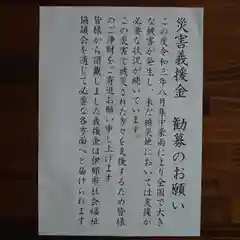 災害義援金　勧募のお願い
この度令和三年八月集中豪雨により全国で大き
な被害が発生し、未だ被災地においては支援が
必要な状況が続いています。
この災害で被災された方々を支援するため皆様
のご浄財をご寄進お願い申し上げます
皆様から頂戴しました義援金は伊那市社会福祉
協議会を通じて必要な各方面へと届けられます